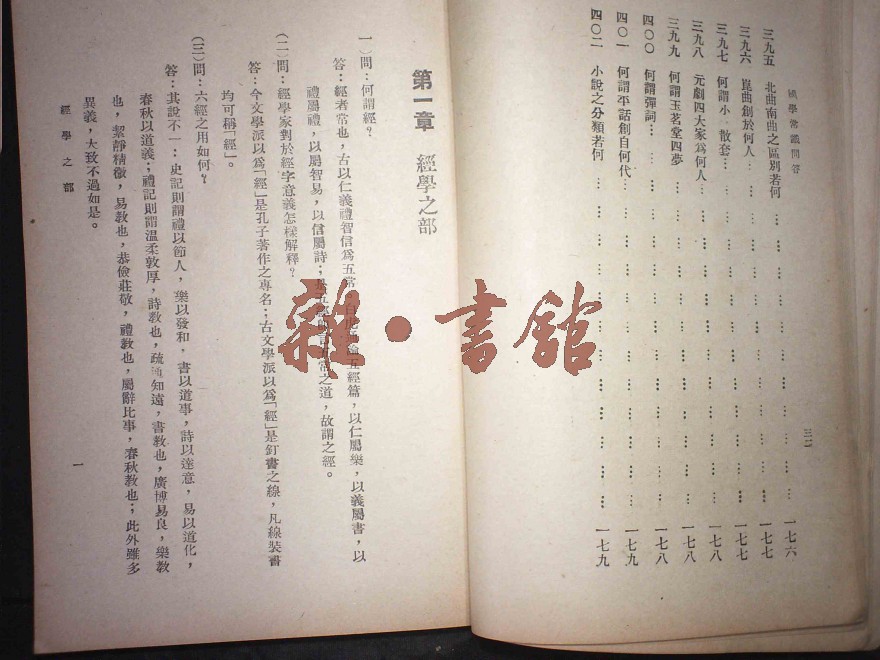 國學常識問答
三九五 北曲南曲之區別若何… … … … … … … … 一七六
三九六 崑曲創於何人… … … … … … … … … 一七七
三九七 何謂小 散套… … … … … … … … … 一七七
三九八 元劇四大家爲何人… … … … … … … … 一七八
三九九 何謂玉茗堂四夢 … … … … … … … … 一七八
四〇〇 何謂彈詞… … … … … … … … … 一七八
四〇一 何謂平話創自何代 … … … … … … … … 一七九
四〇二 小說之分類若何 … … … … … … … … 一七九
第一章 經學之部
一)問:何謂經?
答:經者常也,古以仁義禮智信爲五常,論五經篇,以仁屬樂,以義屬書,以
禮屬禮,以屬智易,以信屬詩;常之道,故謂之經。
(二)問:經學家對於經字意義怎樣解釋?
答:今文學派以爲「經」是孔子著作之專名;古文學派以爲「經」是釘書之線,凡線裝書
均可稱「經」。
(三)問:六經之用如何?
答:其說不一:史記則謂禮以節人,樂以發和,書以道事,詩以達意,易以道化,
春秋以道義;禮記則謂溫柔敦厚,詩教也,疏通知遠,書教也,廣博易良,樂教
也,絜靜精微,易教也,恭儉莊敬,禮教也,屬辭比事,春秋教也;此外雖多
異義,大致不過如是。
經學之部
一
雜·書館